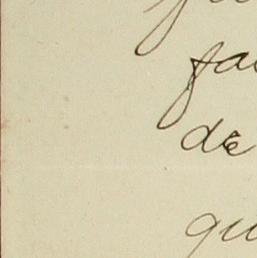 fa
de
qu